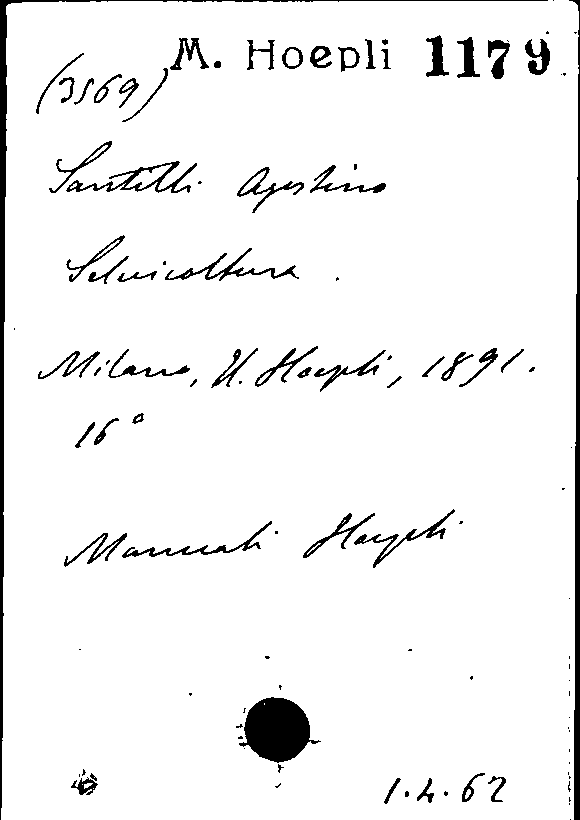 M. Hoepli 1179
(3569)
Santilli Agostino
Selvicoltura.
Milano, U. Hoepli, 1891.
16°
Manuali Hoepli
1.4.62